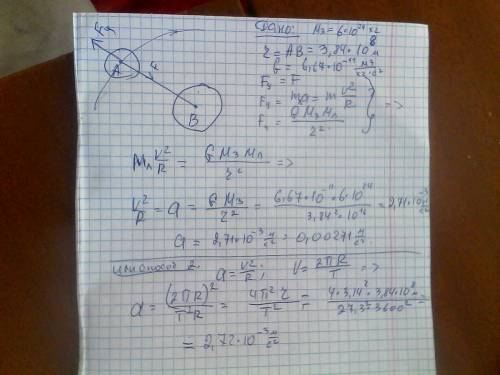 Дано: Mз = 6•10²⁴ кг
r = AB = 3,84•10⁸ м
G = 6,67•10⁻¹¹ м³/кг•с²
A
B
Fy = F
Fy = ma = m v²/R
F = G Mз Mл / r²
} =>
Mл v²/R = G Mз Mл / r² =>
v²/R = a = G Mз / r² = 6,67•10⁻¹¹•6•10²⁴ / 3,84²•10¹⁶ = 2,71•10⁻³ м/с²
a = 2,71•10⁻³ м/с² = 0,00271 м/с².
или способ 2. a = v²/R; V = 2πR/T =>
a = (2πR)²/T²R = 4π²r/T² = 4•3,14²•3,84•10⁸ м / 27,3²•3600² =
= 2,72•10⁻³ м/с²